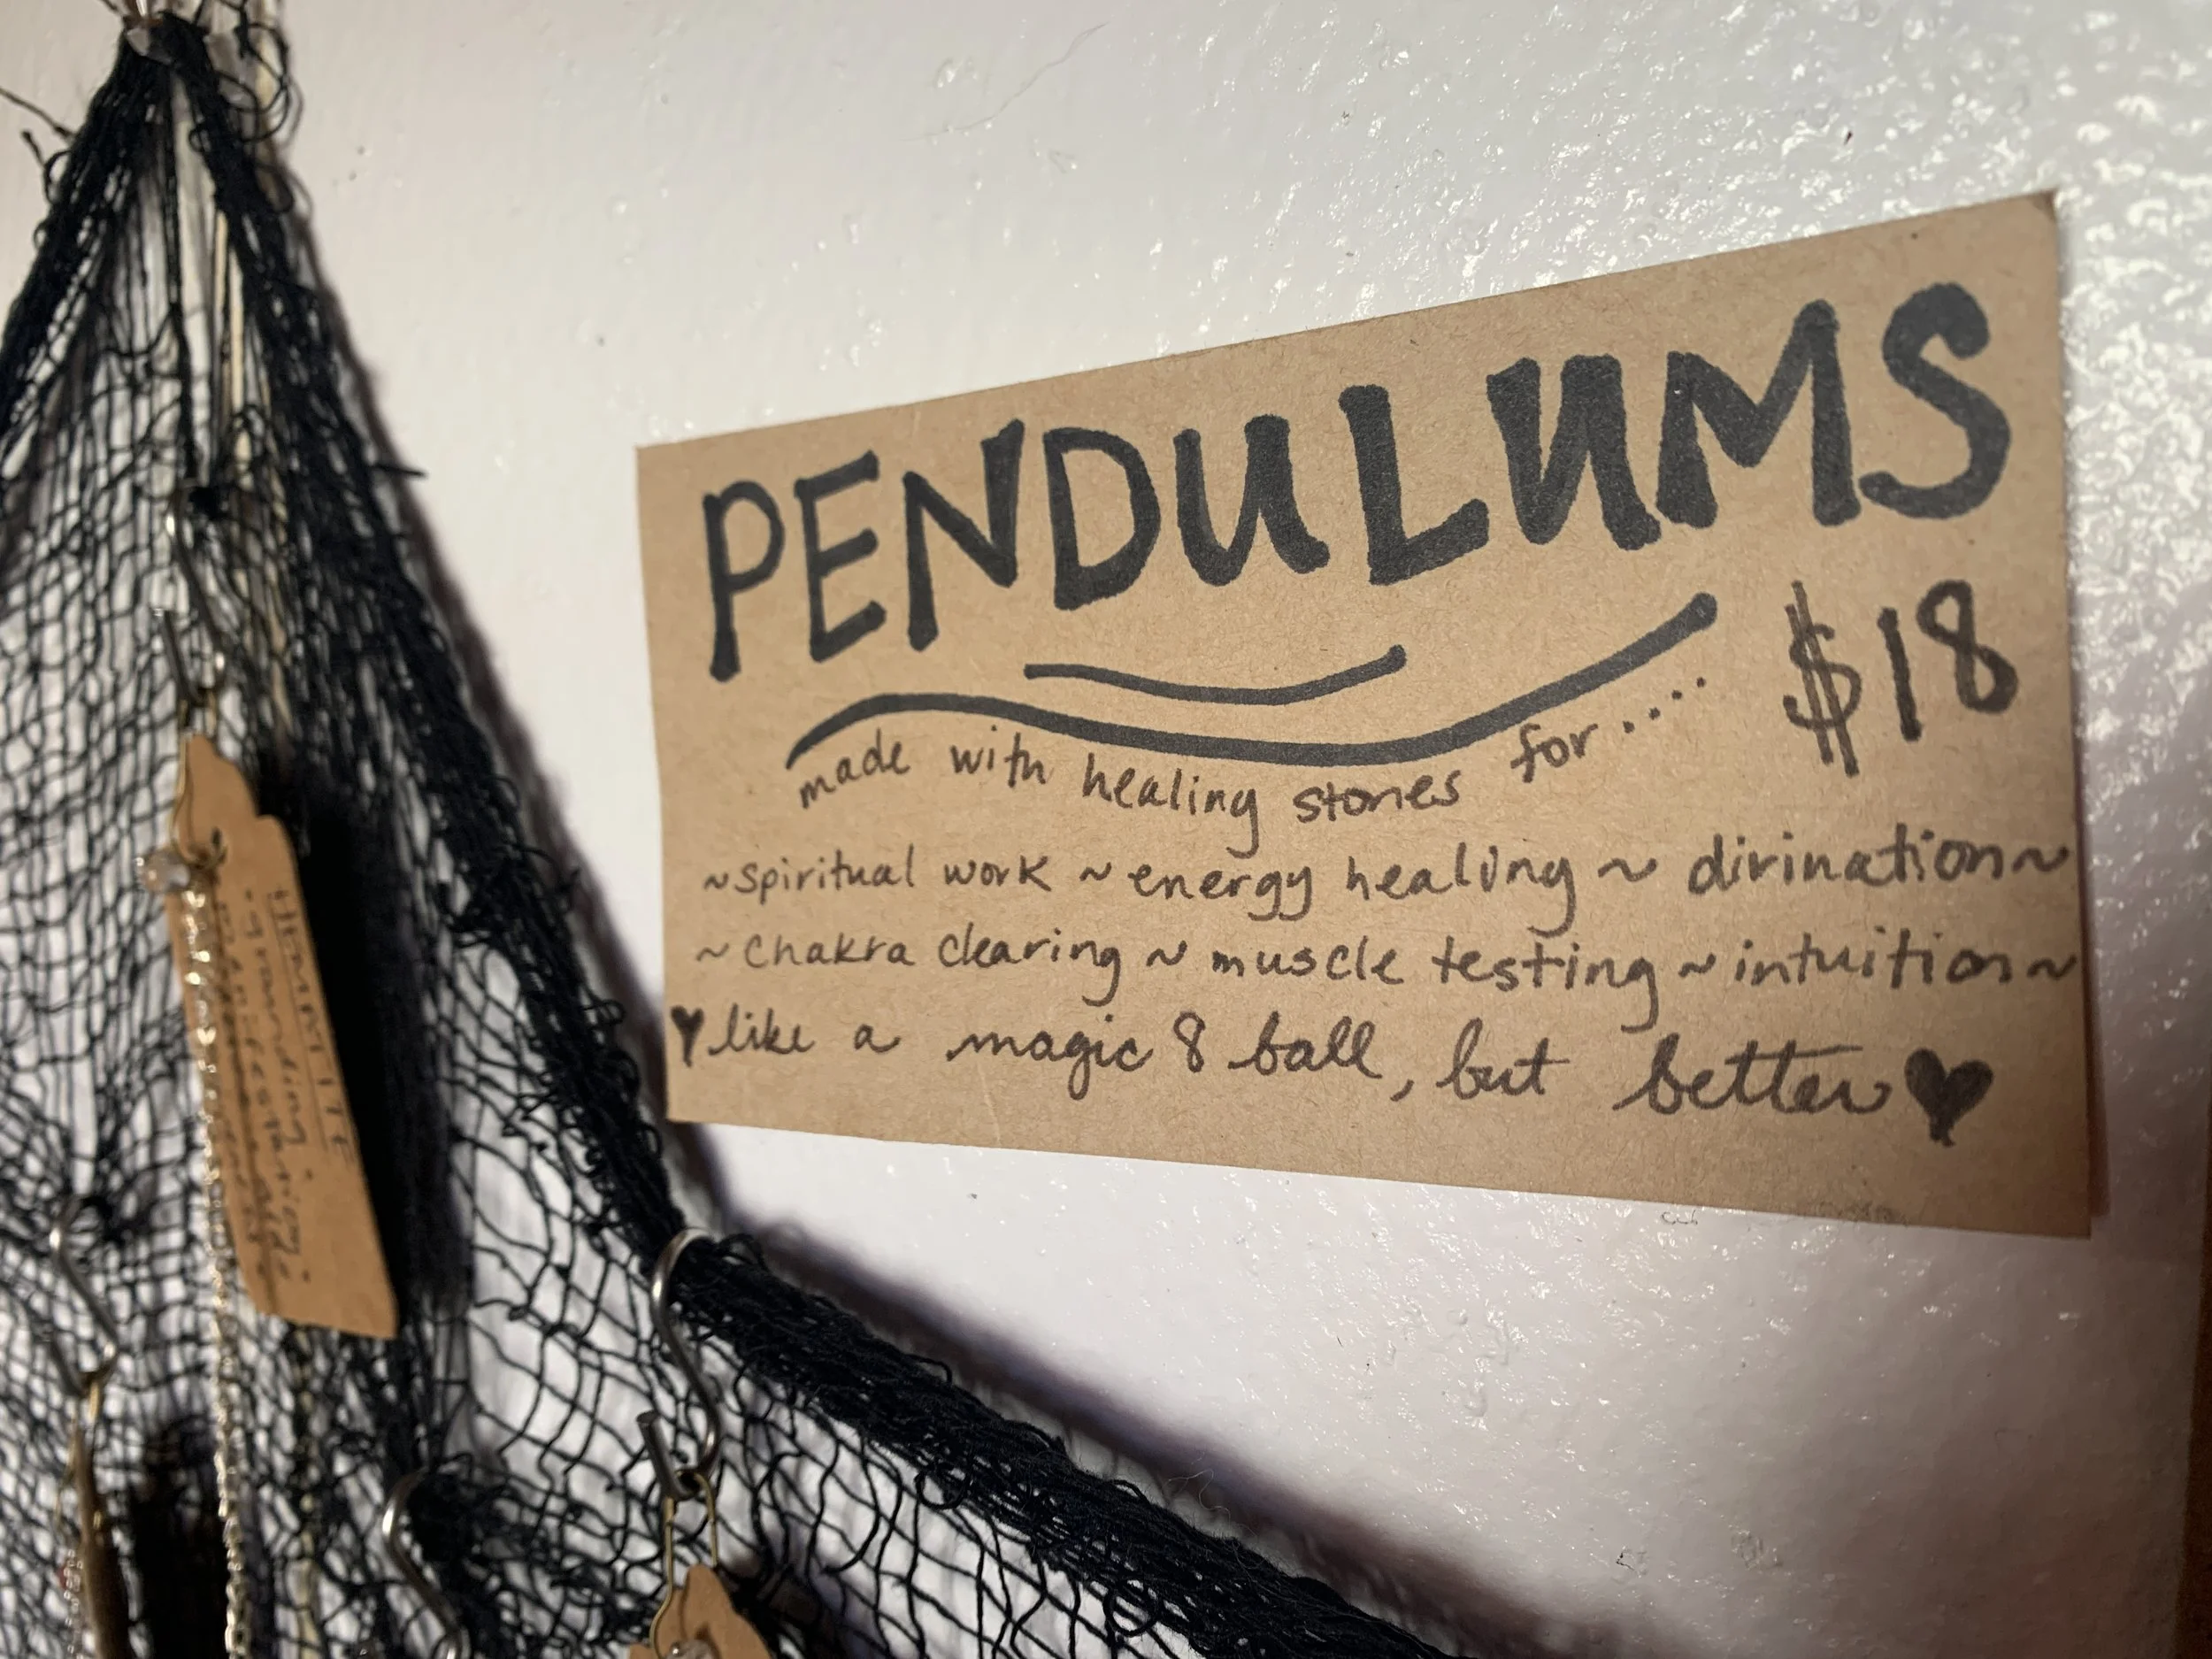 PENDULUMS
$18
made with healing stones for.....
~spiritual work ~ energy healing ~ divination~
~ Chakra clearing ~ muscle testing ~ intuition~
♥ like a magic 8 ball, but better ♥
HEMATITE
. grounding .